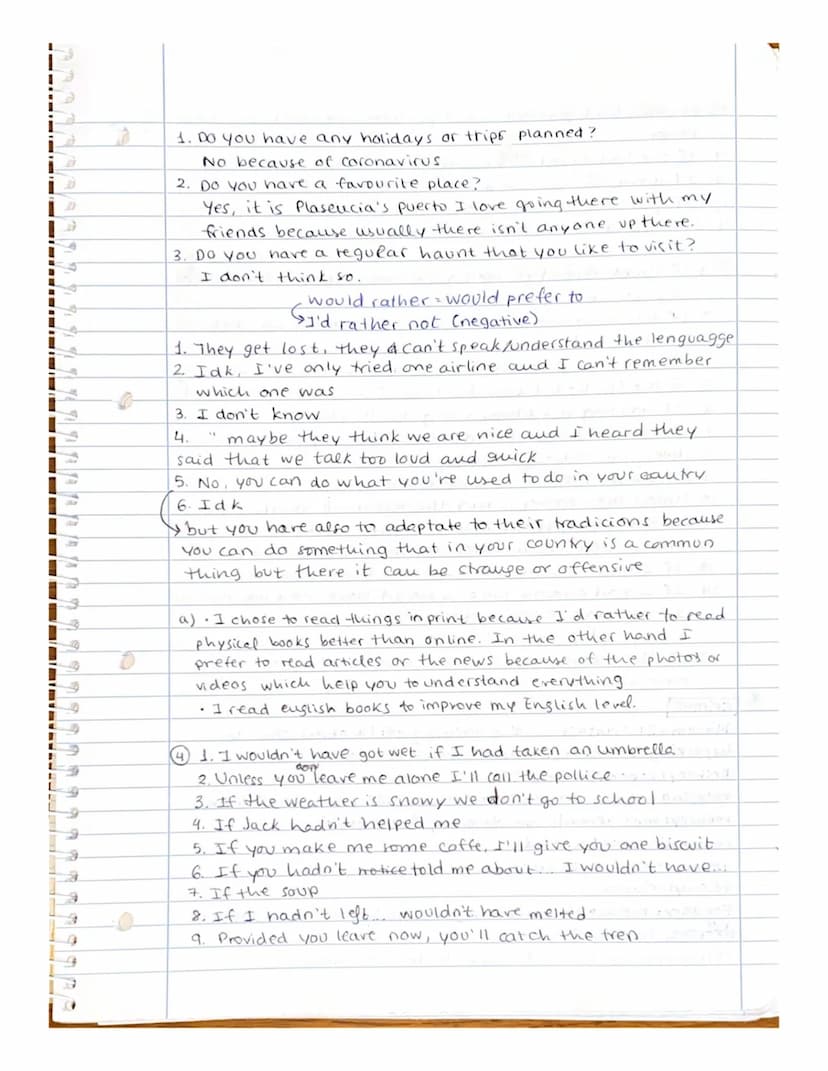 1. Do you have any holidays or trips planned?
No because of coronavirus
2. Do you have a favourite place?
Yes, it is Plasencia's puerto I love going there with my
friends because usually there isn't anyone up there.
3. Do you have a regular haunt that you like to visit?
I don't think so.
would rather = would prefer to
I'd rather not (negative)
1. They get lost, they can't speak/understand the lenguagge
2. Idk, I've only tried one airline and I can't remember
which one was
3. I don't know
4. " maybe they think we are nice and I heard they
said that we talk too loud and quick
5. No, you can do what you're used to do in your cauntry
6. Idk
but you have also to adaptate to their tradicions because
you can do something that in your country is a common
thing but there it can be strange or offensive
a) · I chose to read things in print because I'd rather to read
physical books better than online. In the other hand I
prefer to read articles or the news because of the photos or
videos which help you to understand everything
· I read english books to improve my English level.
4 1. I wouldn't have got wet if I had taken an umbrella
2. Unless you don't leave me alone I'll call the pollice
3. If the weather is snowy we don't go to school
4. If Jack hadn't helped me
5. If you make me some coffe, I'll give you one biscuit
6. If you hadn't notice told me about... I wouldn't have...
7. If the soup
8. If I hadn't left... wouldn't have melted
9. Provided you leave now, you'll catch the tren